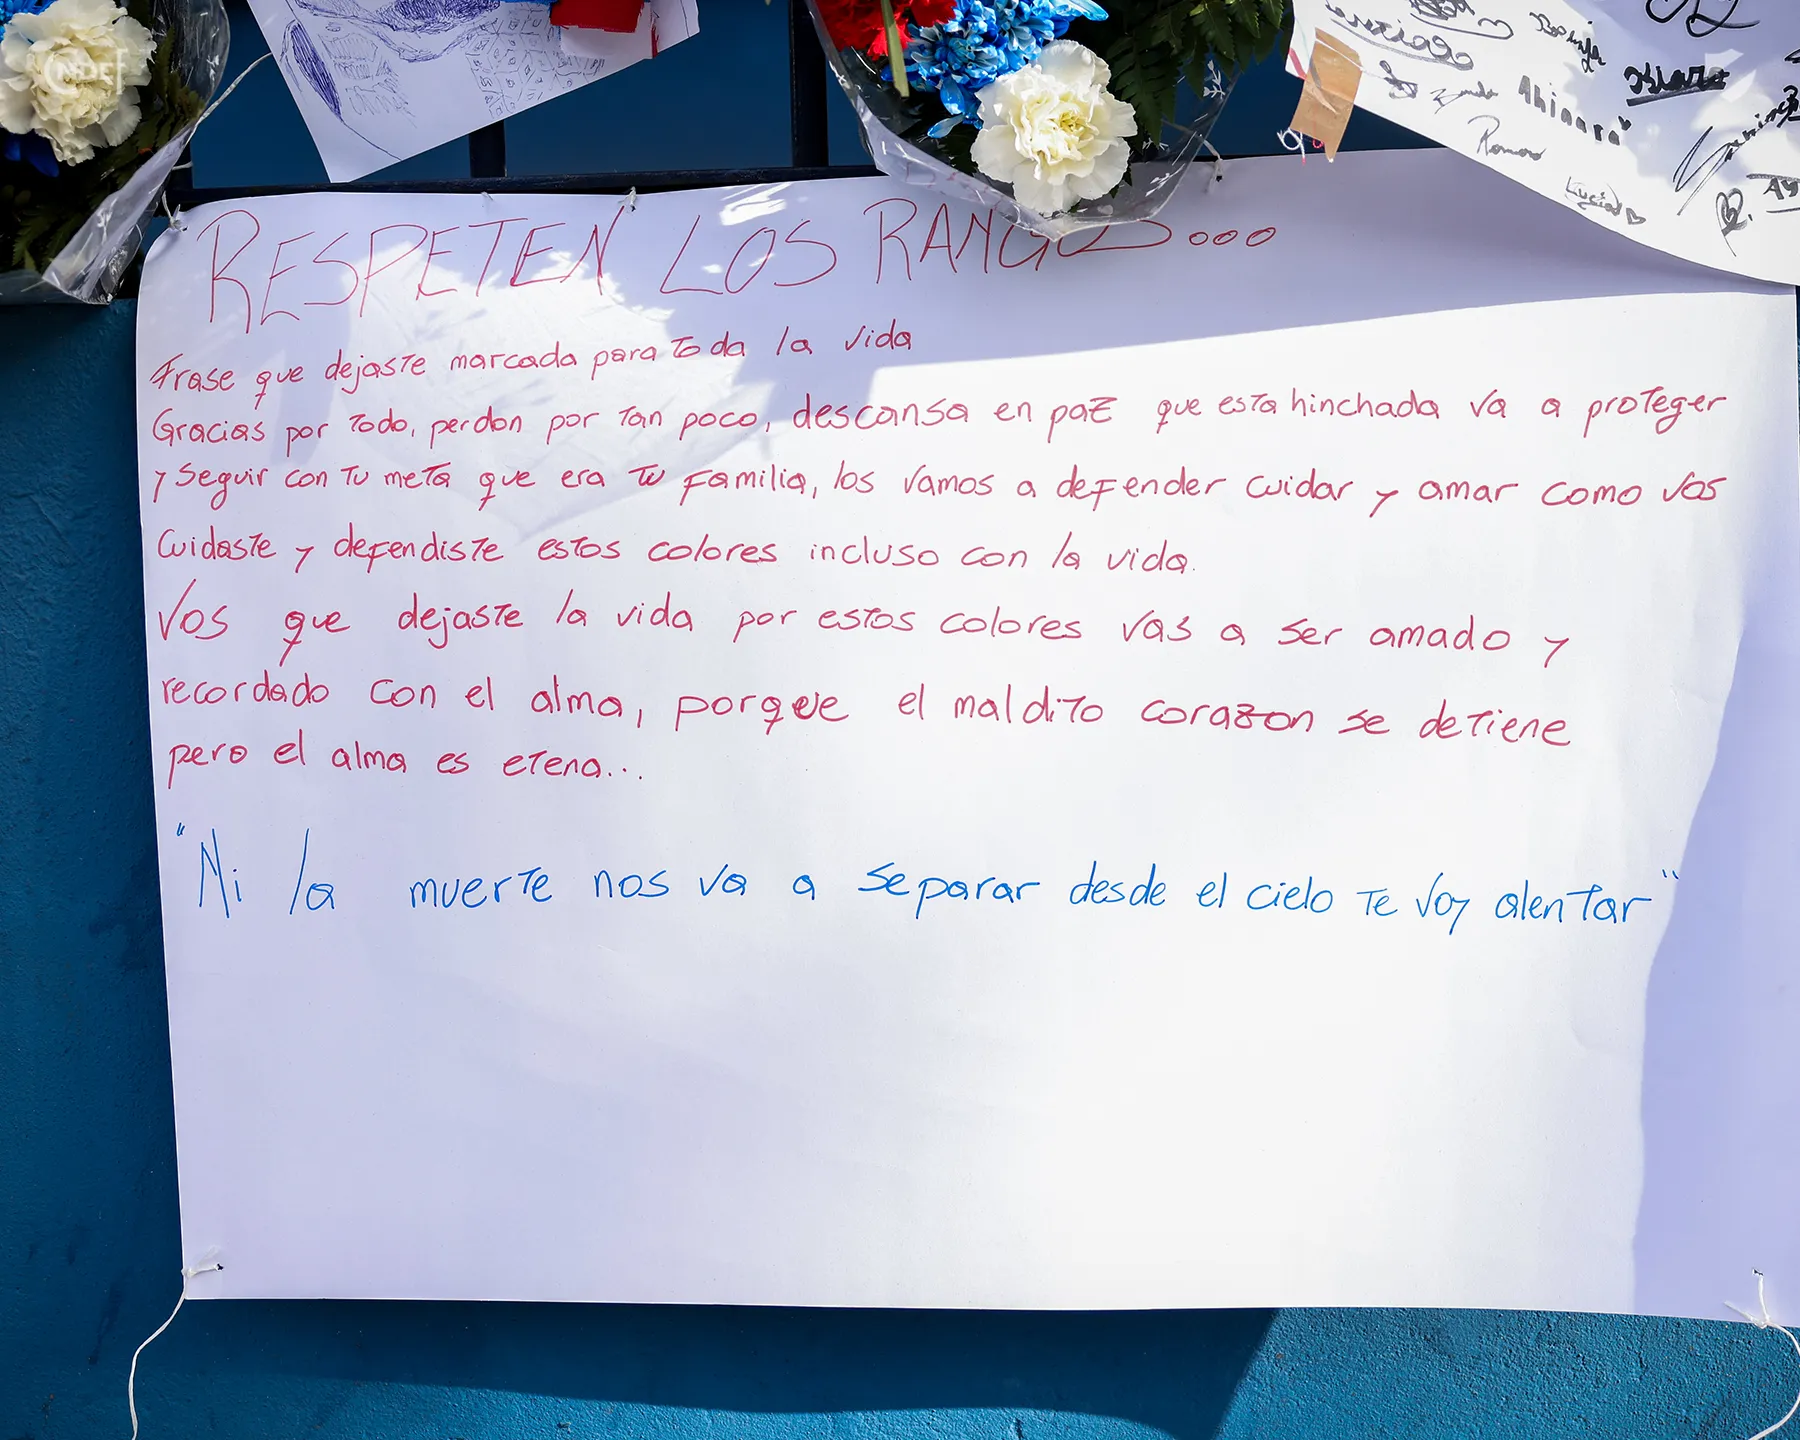 Romero
Ahinara
Kiara
Luciad
RESPETEN LOS RANGOS...
Frase que dejaste marcada para toda la vida
Gracias por todo, perdon por tan poco, descansa en paz que esta hinchada va a proteger
y seguir con tu meta que era tu familia, los vamos a defender cuidar y amar como vos
cuidaste y defendiste estos colores incluso con la vida.
Vos que dejaste la vida por estos colores vas a ser amado y
recordado con el alma, porque el maldito corazon se detiene
pero el alma es etena...
"Ni la muerte nos va a separar desde el cielo te voy alentar"